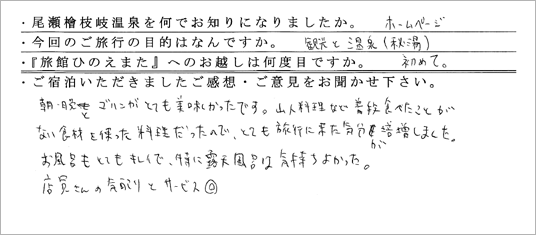 ・尾瀬檜枝岐温泉を何でお知りになりましたか。 ホームページ
・今回のご旅行の目的はなんですか。 観光と温泉(秘湯)
・『旅館ひのえまた』へのお越しは何度目ですか。 初めて。
・ご宿泊いただきましたご感想・ご意見をお聞かせ下さい。
朝・晩とも ゴハンがとても美味しかったです。山人料理など普段食べたことが
ない食材を使った料理だったので、とても旅行に来た気分が倍増しました。
お風呂もとてもキレイで、特に露天風呂は気持ちよかった。
店員さんの気配りとサービス◎